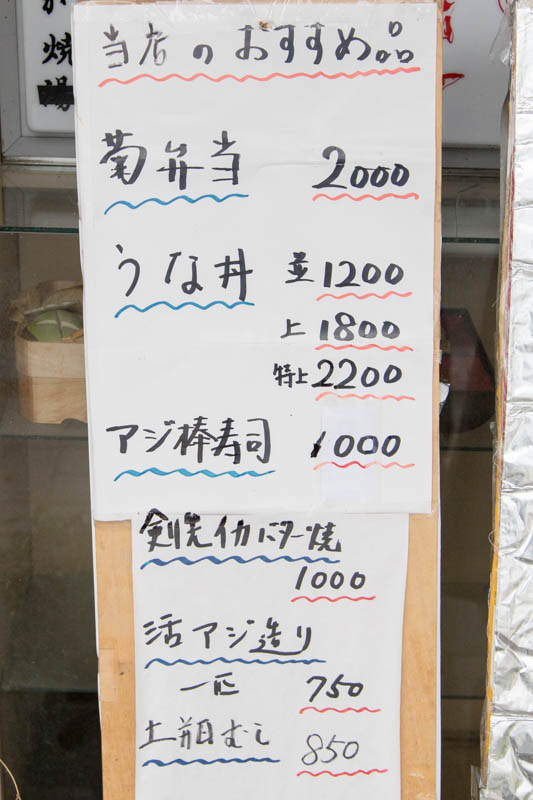 当店のおすすめ品
菊弁当 2000
うな丼 並 1200
上 1800
特上 2200
アジ棒寿司 1000
剣先イカバター焼
1000
活アジ造り
一匹 750
土瓶むし 850